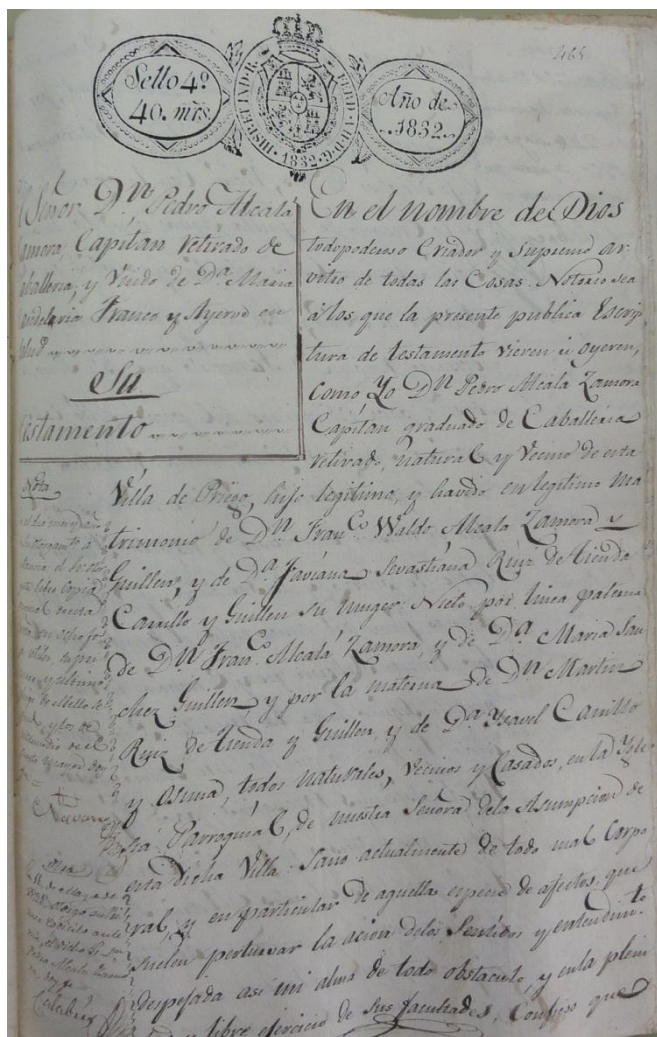 465
Sello 4º
40. mrs.
HISP. ET IND. R.
FERD. VII. D. G.
1832
Año de
1832.
Señor Dⁿ, Pedro Alcalá
amora, Capitan retirado de
aballeria, y Viudo de Dª Maria
andelaria Franco y Ayerve en
Salud
Su
estamento
En el nombre de Dios
todopoderoso Criador y Supremo ar-
vitro de todas las Cosas. Notorio sea
á los que la presente publica Escrip-
tura de testamento vieren ú oyeren,
como, Yo Dⁿ Pedro Alcala Zamora
Capitan graduado de Caballeria
retirado, natural y Vecino de esta
Villa de Priego, hijo legitimo, y havido en legitimo Ma
trimonio de Dⁿ. Franᶜᵒ. Waldo Alcala Zamora y
Guillen, y de Dª Faviana Sevastiana Ruiz de Tienda
Carrillo y Guillen su muger: Nieto por linea paterna
de Dⁿ Franᶜᵒ. Alcalá Zamora, y de Dª Maria San
chez Guillen, y por la materna de Dⁿ Martin
Ruiz de tienda y Guillen, y de Dª Ysavel Carrillo
y Osuna, todos naturales, Vecinos y Casados, en la Ygle
Parroquial, de nuestra Señora dela Asumpcion de
esta Dicha Villa: Sano actualmente de todo mal Corpo
ral, y en particular de aquella especie de afectos, que
suelen perturvar la acion delos Sentidos y entendimᵗᵒ
despejada asi mi alma de todo obstaculo, y enla pleni
y libre ejercicio de sus facultades, Confieso que
Nota